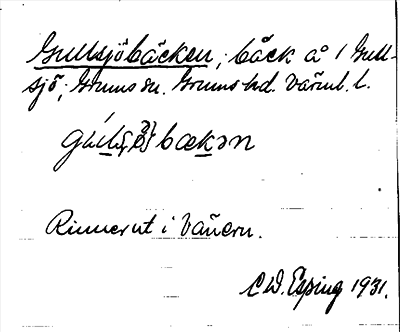 Gullsjöbäcken, bäck å 1 Gull-
sjö, Grums sn. Grums hd. Värml. l.
bækən
Rinner ut i Vänern.
C W. Esping 1931.